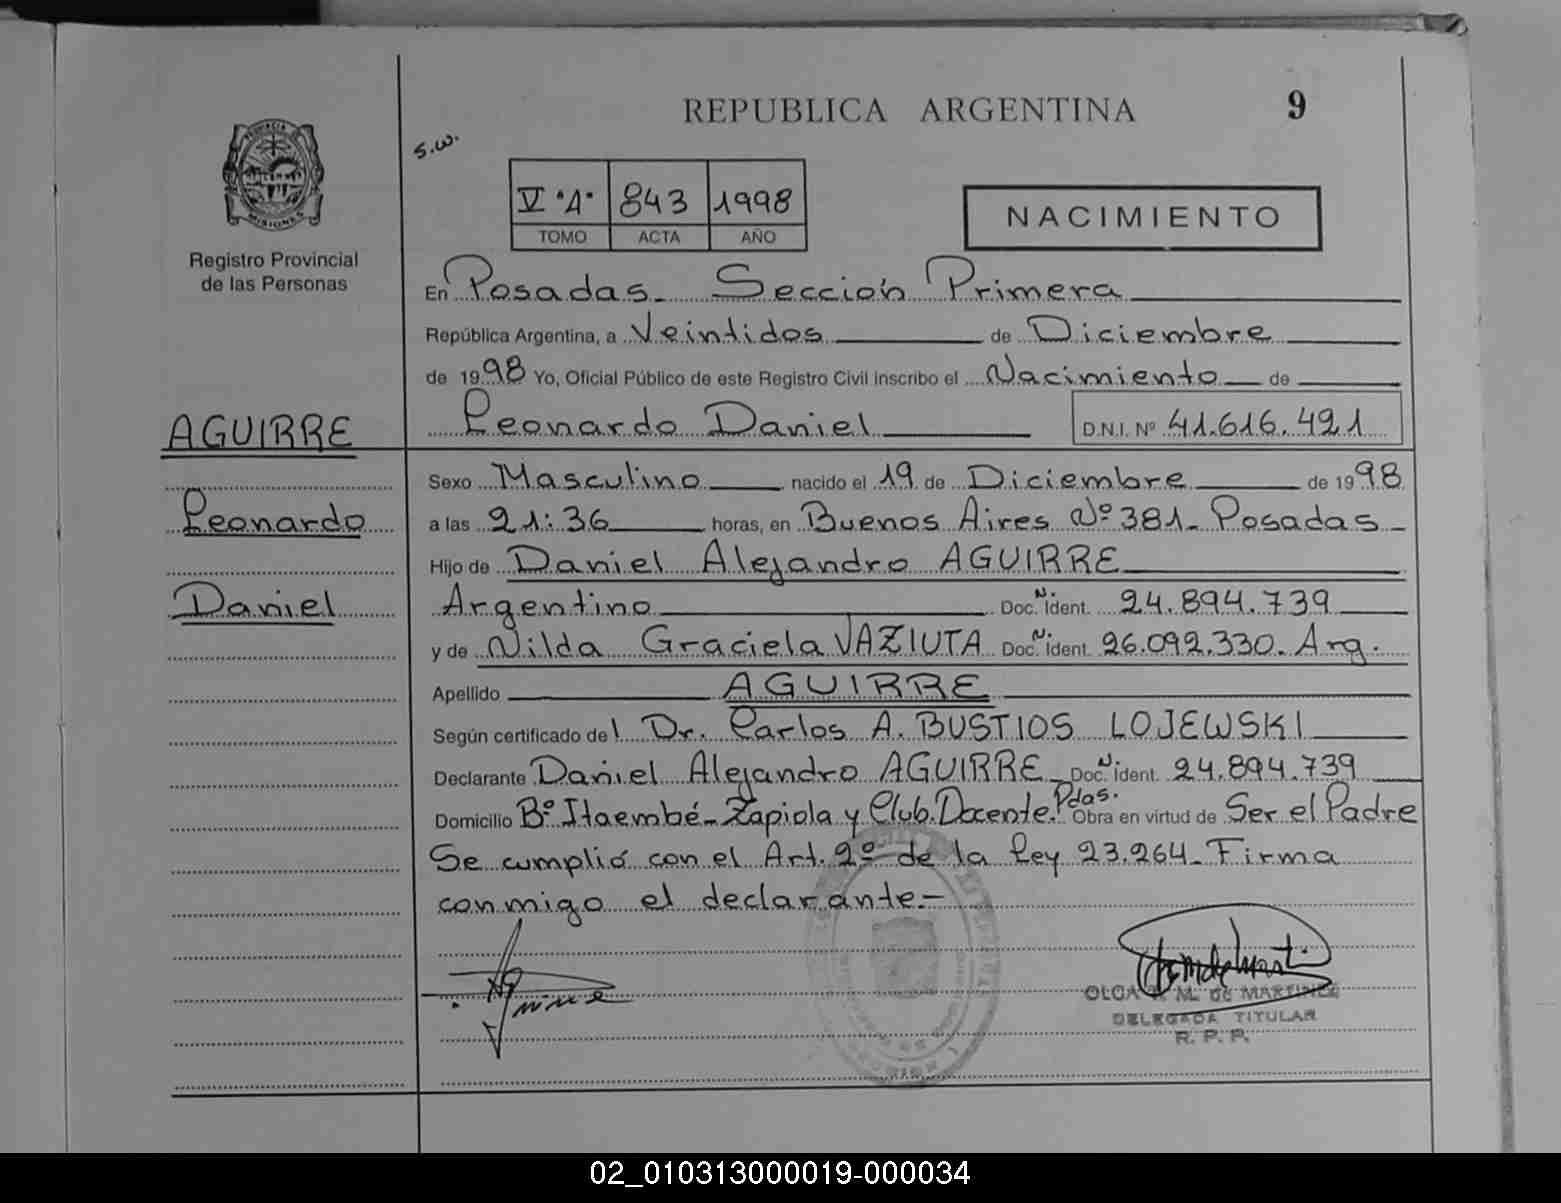 REPUBLICA ARGENTINA
9
s.w.
PROVINCIA DE
MISIONES
Registro Provincial
de las Personas
V "A" 843 1998
TOMO ACTA AÑO
NACIMIENTO
En Posadas - Sección Primera
República Argentina, a Veintidos de Diciembre
de 1998 Yo, Oficial Público de este Registro Civil inscribo el Nacimiento de
Leonardo Daniel D.N.I. Nº 41.616.421
AGUIRRE
Leonardo
Daniel
Sexo Masculino nacido el 19 de Diciembre de 1998
a las 21:36 horas, en Buenos Aires Nº 381 - Posadas -
Hijo de Daniel Alejandro AGUIRRE
Argentino Doc. N. Ident. 24.894.739
y de Nilda Graciela VAZIUTA Doc. N. Ident. 26.092.330. Arg.
Apellido AGUIRRE
Según certificado del Dr. Carlos A. BUSTIOS LOJEWSKI
Declarante Daniel Alejandro AGUIRRE - Doc. N. Ident. 24.894.739
Domicilio Bº Itaembé - Zapiola y Club. Docente. Pdas. Obra en virtud de Ser el Padre
Se cumplió con el Art. 2º de la Ley 23.264 - Firma
conmigo el declarante.-
M. de MARTINEZ
DELEGADA TITULAR
R. P. P.
02_010313000019-000034